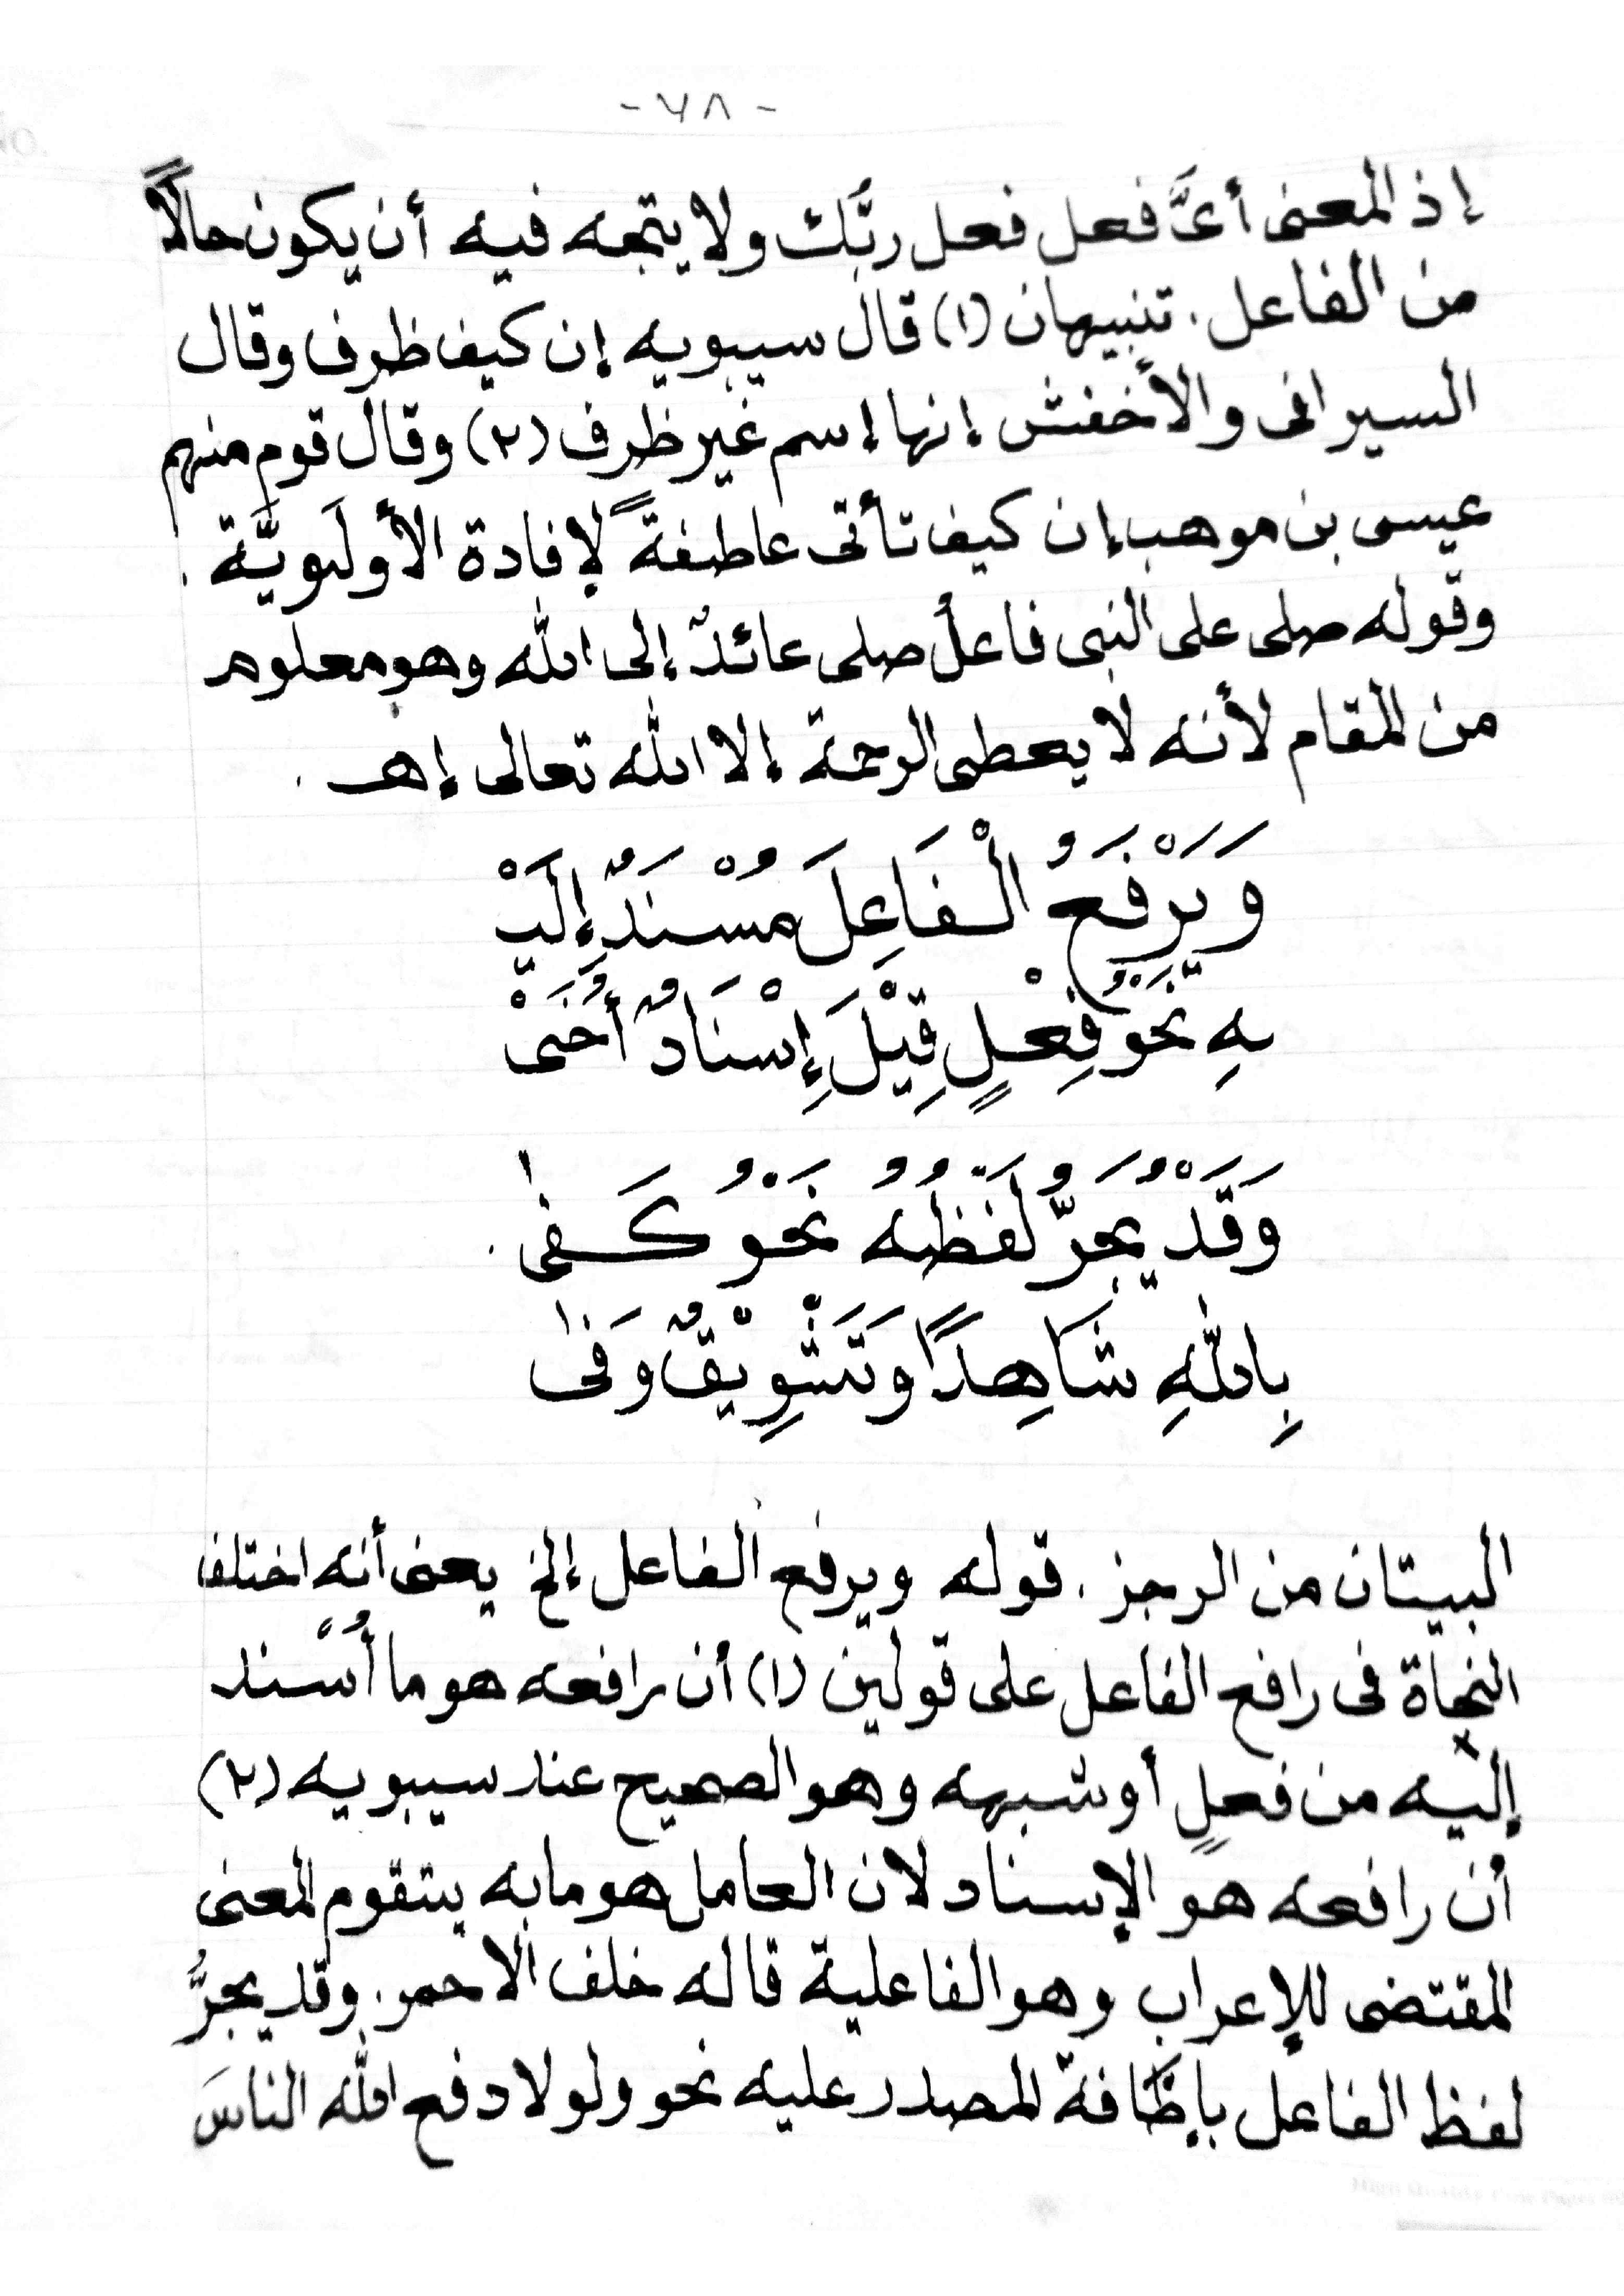 -٦٨-
إذ المعنى أىَّ فعل فعل ربُّك ولا يتجه فيه أن يكون حالًا
من الفاعل. تنبيهان (١) قال سيبويه إن كيف ظرف وقال
السيرافى والأخفش إنها إسم غير ظرف (٢) وقال قوم منهم
عيسى بن موهب إن كيف تأتى عاطفةً لإفادة الأولَويَّة.
وقوله صلى على النبى فاعلُ صلى عائدٌ إلى الله وهو معلوم
من المقام لأنه لا يعطى الرحمة إلا الله تعالى إهـ.
وَيَرْفَعُ الْفَاعِلَ مُسْنَدٌ إِلَيْ
بِهِ نَحْوُ فِعْلٍ قِيْلَ إِسْنَادٌ أُخَىْ
وَقَدْ يُجَرُّ لَفْظُهُ نَحْوُ كَفٰى.
بِاللّٰهِ شَاهِدًا وَتَشْوِيْقٌ وَفٰى
البيتان من الرجز. قوله ويرفع الفاعل إلخ يعنى أنه اختلف
النحاة فى رافع الفاعل على قولين (١) أن رافعه هو ما أُسْند
إليه من فعلٍ أو شبهه وهو الصحيح عند سيبويه (٢)
أن رافعه هو الإسناد لان العامل هو ما به يتقوم المعنى
المقتضى للإعراب وهو الفاعلية قاله خلف الاحمر. وقد يجرُّ
لفظ الفاعل بإظَافة المصدر عليه نحو ولولا دفع الله الناسَ